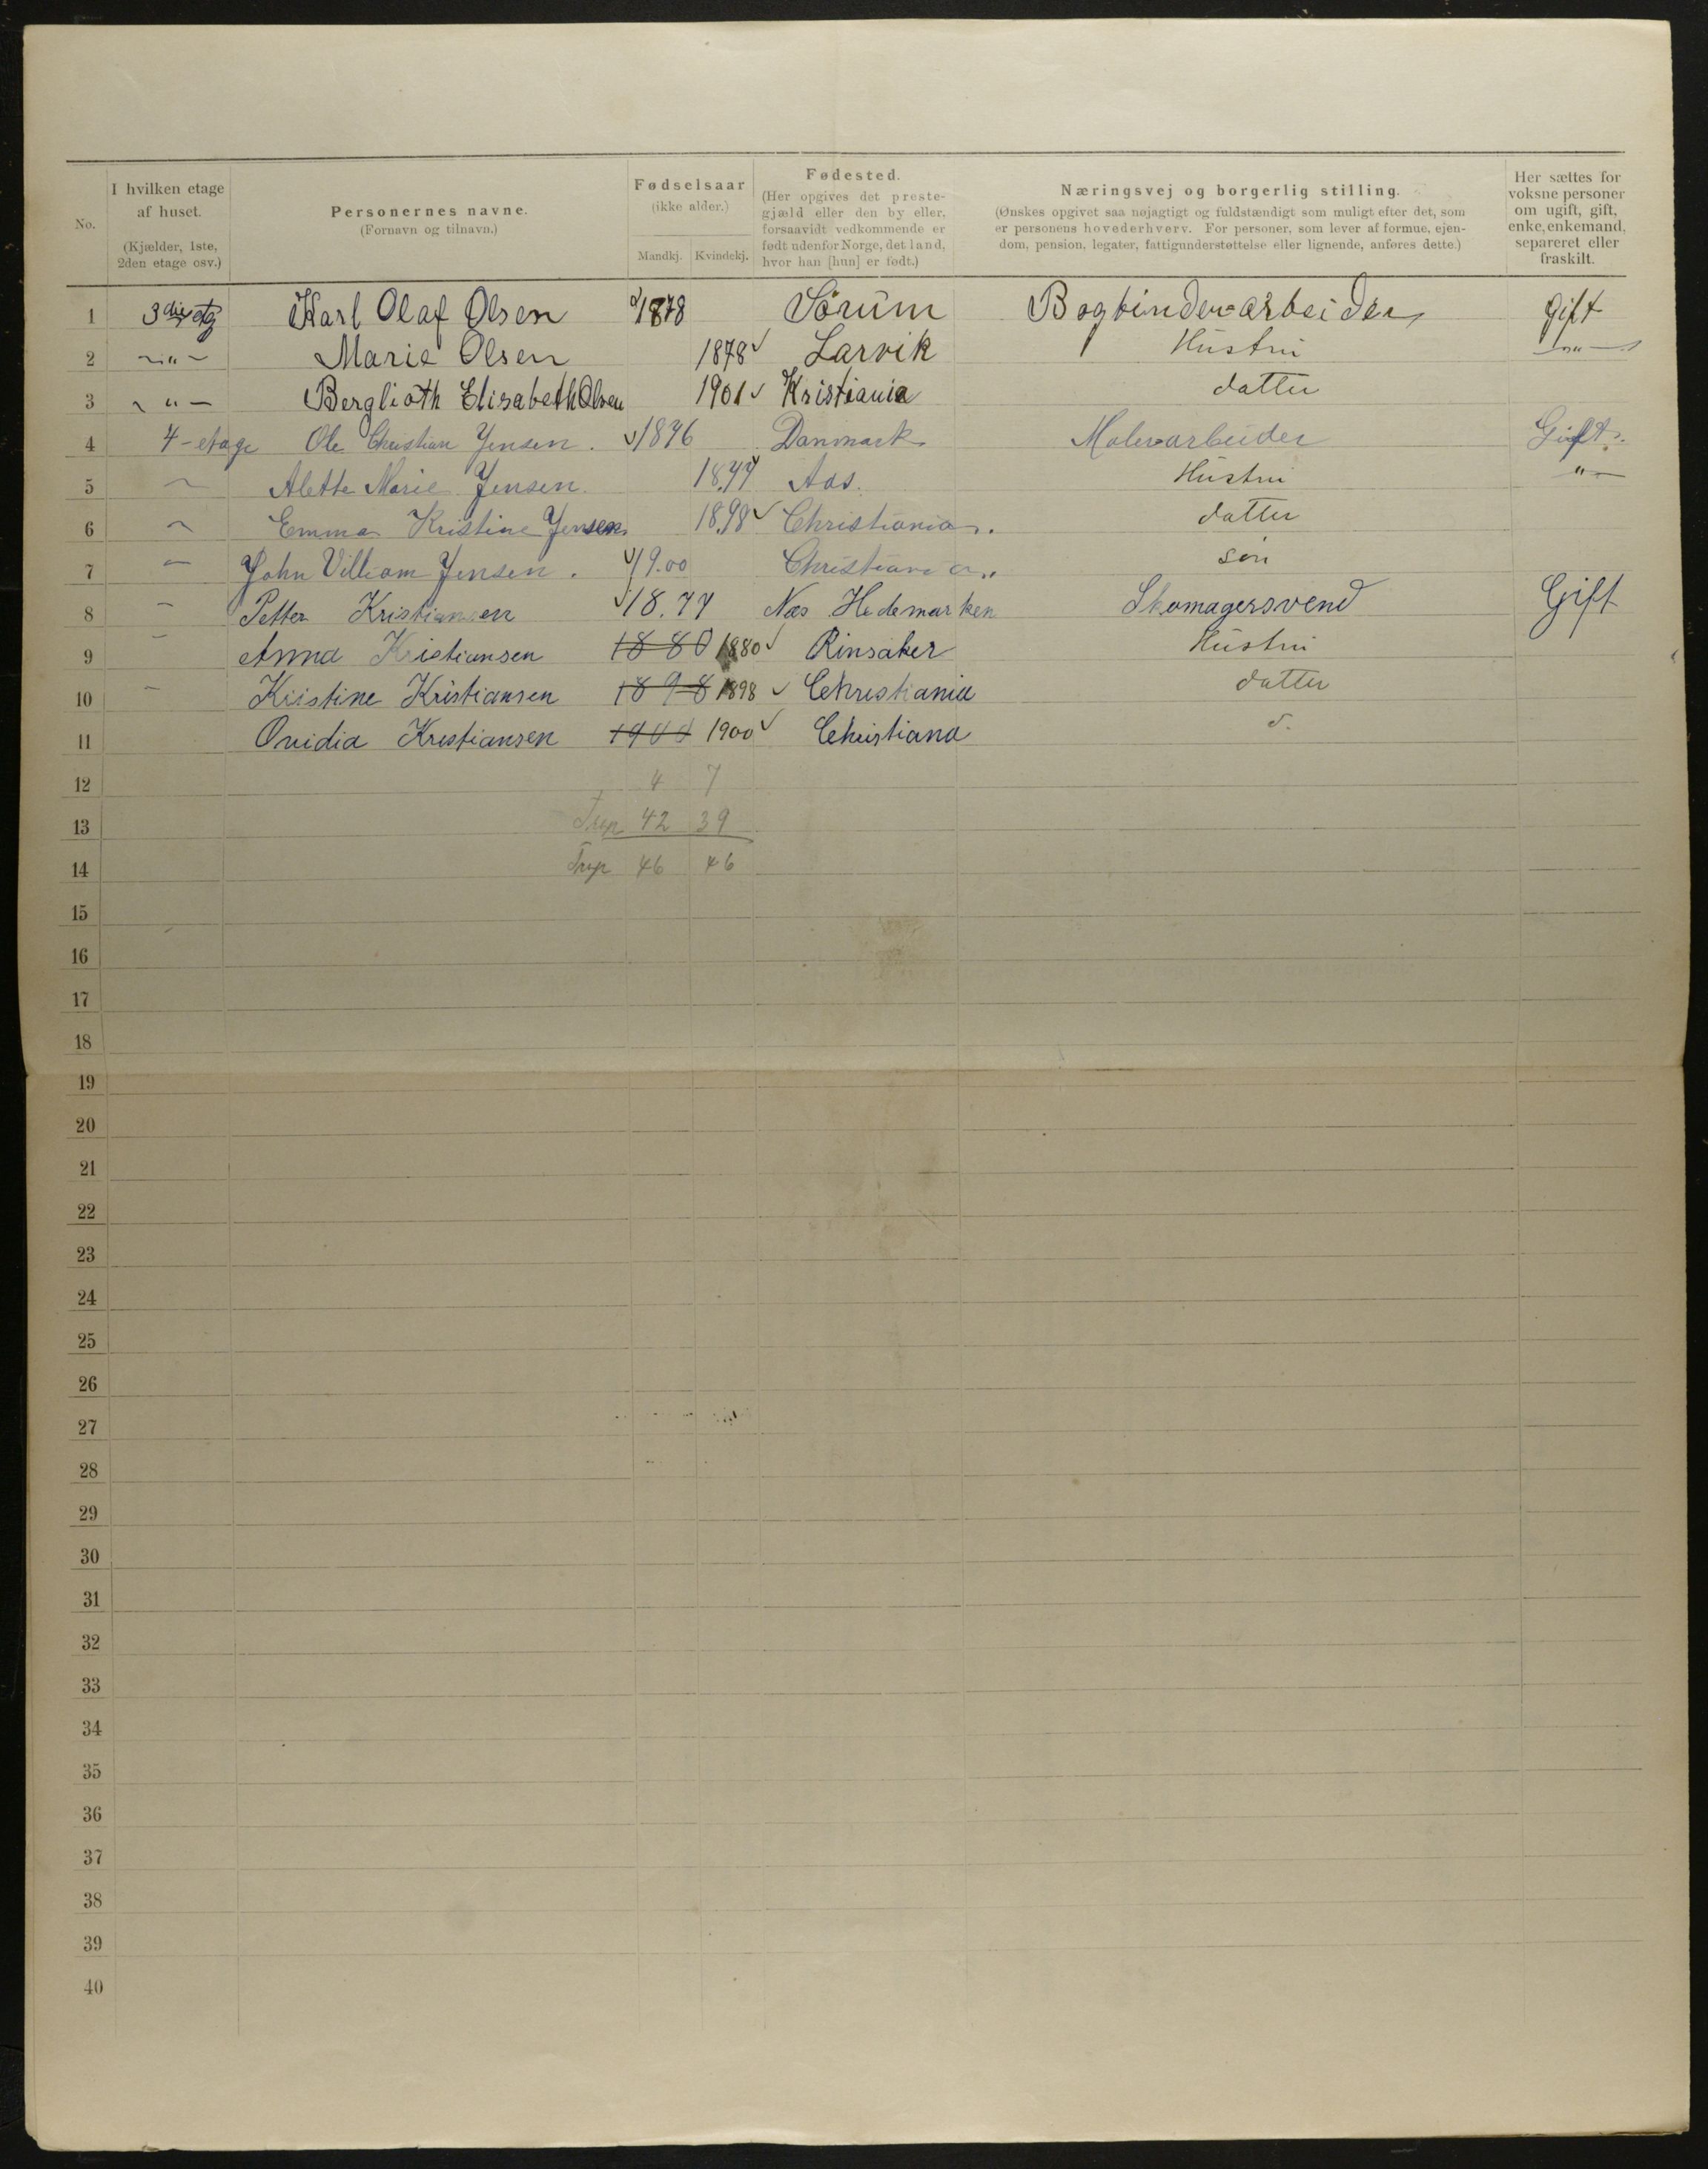 No.
I hvilken etage
af huset.
(Kjælder, 1ste,
2den etage osv.)
Personernes navne.
(Fornavn og tilnavn.)
Fødselsaar
(ikke alder.)
Mandkj. Kvindekj.
Fødested.
(Her opgives det preste-
gjæld eller den by eller,
forsaavidt vedkommende er
født udenfor Norge, det land,
hvor han [hun] er født.)
Næringsvej og borgerlig stilling.
(Ønskes opgivet saa nøjagtigt og fuldstændigt som muligt efter det, som
er personens hovederhverv. For personer, som lever af formue, ejen-
dom, pension, legater, fattigunderstøttelse eller lignende, anføres dette.)
Her sættes for
voksne personer
om ugift, gift,
enke, enkemand,
separeret eller
fraskilt.
1 3die etg Karl Olaf Olsen 1878 Sørum Bogbinderarbeider Gift
2 -"- Marie Olsen 1878 Larvik Hustru -"-
3 -"- Berglioth Elisabeth Olsen 1901 Kristiania datter
4 4-etage Ole Christian Jensen. 1876 Danmark Malerarbeider Gift.
5 Alette Marie Jensen. 1877 Aas. Hustru "-
6 Emma Kristine Jensen 1898 Christiania. datter
7 John Villiam Jensen. 19.00 Christiania. søn
8 Petter Kristiansen 18.77 Næs Hedemarken Skomagersvend Gift
9 Anna Kristiansen 1880 1880 Rinsaker Hustru
10 Kristine Kristiansen 1898 1898 Christiania datter
11 Ovidia Kristiansen 1900 1900 Christiana d.
12 4 7
13 42 39
14 46 46
15
16
17
18
19
20
21
22
23
24
25
26
27
28
29
30
31
32
33
34
35
36
37
38
39
40